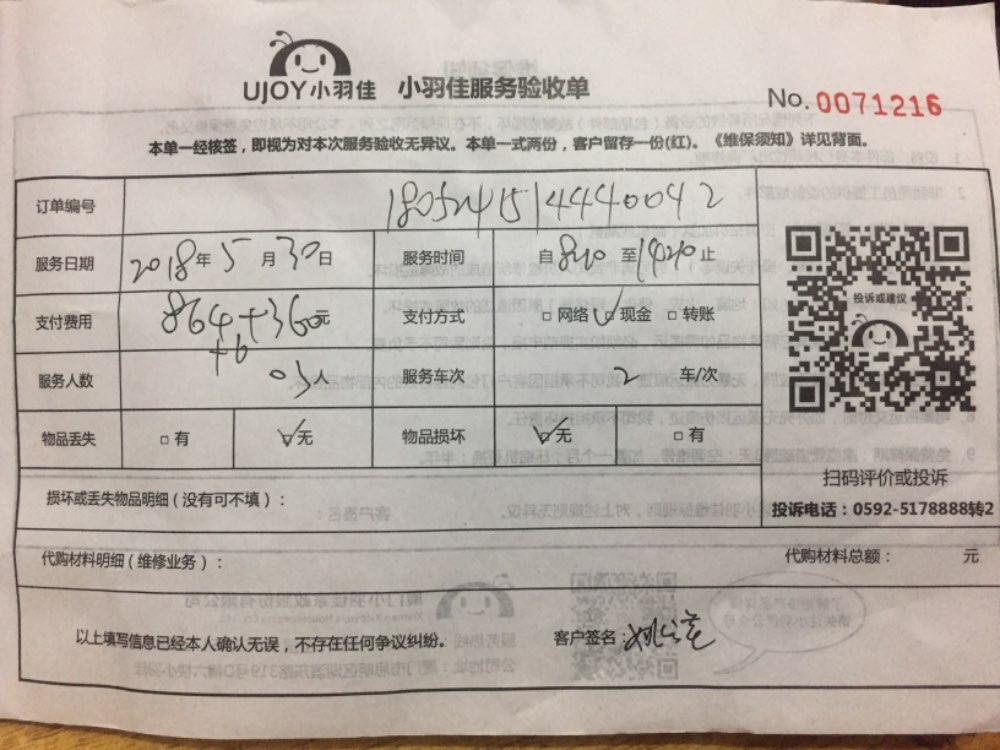 UJOY小羽佳 小羽佳服务验收单
No.0071216
本单一经核签，即视为对本次服务验收无异议。本单一式两份，客户留存一份(红)。《维保须知》详见背面。
订单编号 1805241514440042
服务日期 2018年5月30日 服务时间 自840至1420止
支付费用 864+360元 支付方式 □网络 ☑现金 □转账
+6
服务人数 03 服务车次 2 车/次
物品丢失 □有 ☑无 物品损坏 ☑无 □有
投诉或建议
扫码评价或投诉
投诉电话：0592-5178888转2
损坏或丢失物品明细（没有可不填）：
代购材料明细（维修业务）： 代购材料总额： 元
以上填写信息已经本人确认无误，不存在任何争议纠纷。 客户签名：